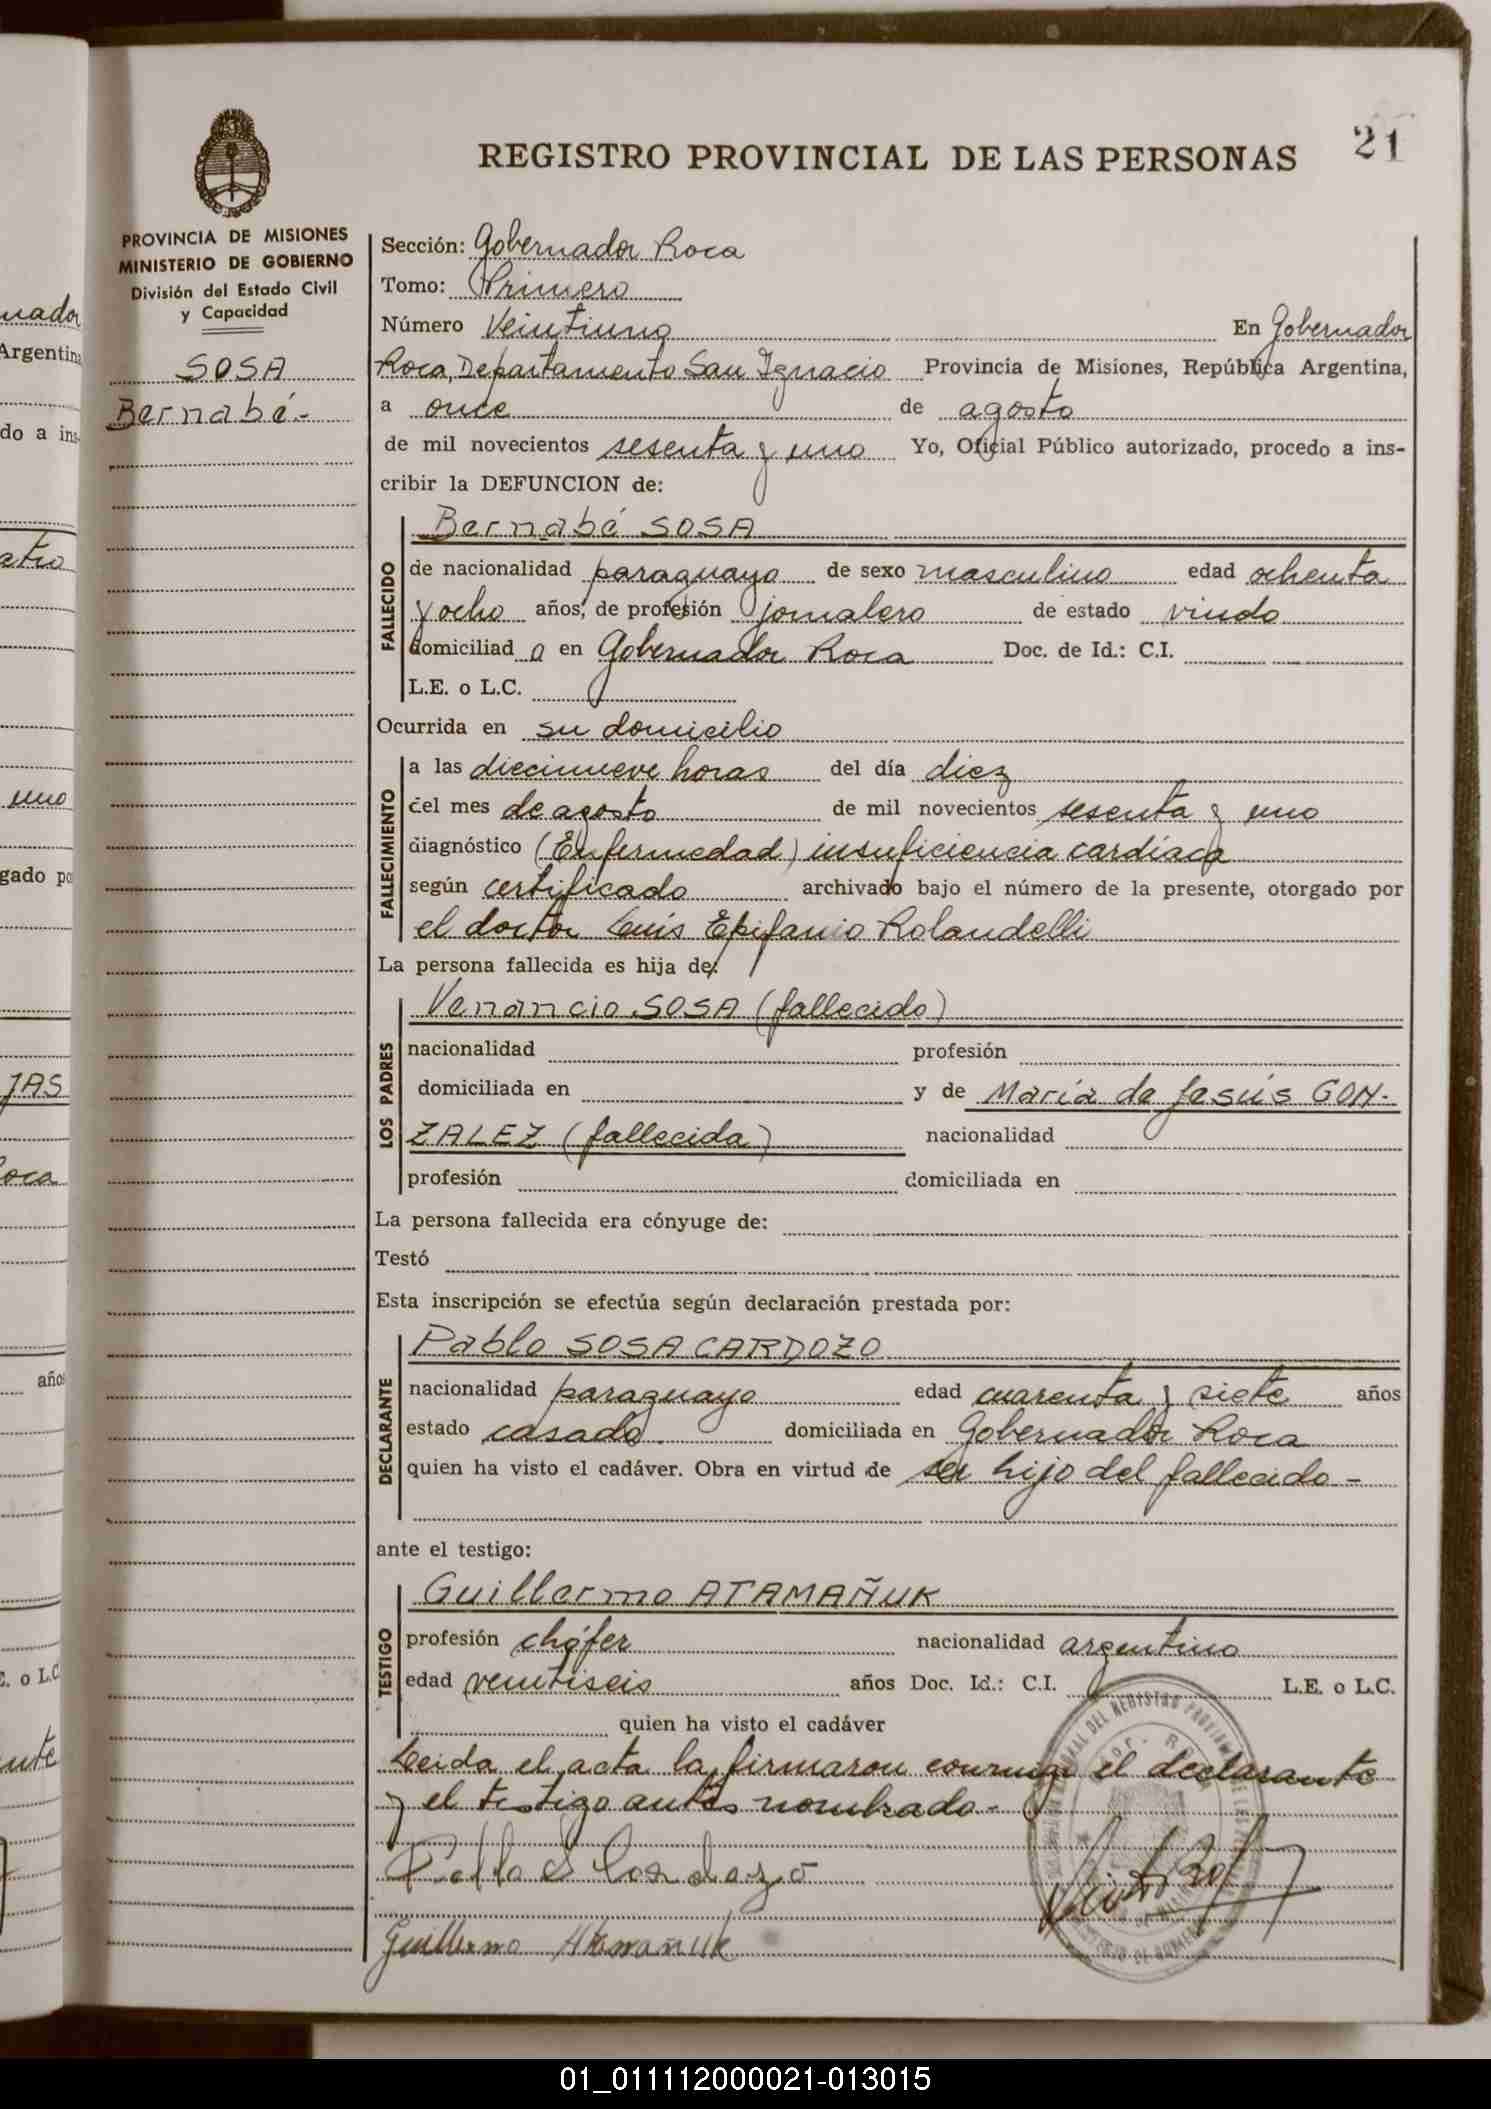 REGISTRO PROVINCIAL DE LAS PERSONAS
21
PROVINCIA DE MISIONES
MINISTERIO DE GOBIERNO
División del Estado Civil
y Capacidad
SOSA
Bernabé.-
Sección: Gobernador Roca
Tomo: Primero
Número Veintiuno En Gobernador
Roca, Departamento San Ignacio Provincia de Misiones, República Argentina,
a once de agosto
de mil novecientos sesenta y uno Yo, Oficial Público autorizado, procedo a ins-
cribir la DEFUNCION de:
FALLECIDO
Bernabé SOSA
de nacionalidad paraguayo de sexo masculino edad ochenta
y ocho años, de profesión jornalero de estado viudo
domiciliad o en Gobernador Roca Doc. de Id.: C.I.
L.E. o L.C.
Ocurrida en su domicilio
FALLECIMIENTO
a las diecinueve horas del día diez
del mes de agosto de mil novecientos sesenta y uno
diagnóstico (Enfermedad) insuficiencia cardíaca
según certificado archivado bajo el número de la presente, otorgado por
el doctor Luis Epifanio Rolandelli
La persona fallecida es hija de:
LOS PADRES
Venancio SOSA (fallecido)
nacionalidad profesión
domiciliada en y de María de Jesús GON-
ZALEZ (fallecida) nacionalidad
profesión domiciliada en
La persona fallecida era cónyuge de:
Testó
Esta inscripción se efectúa según declaración prestada por:
DECLARANTE
Pablo SOSA CARDOZO
nacionalidad paraguayo edad cuarenta y siete años
estado casado domiciliada en Gobernador Roca
quien ha visto el cadáver. Obra en virtud de ser hijo del fallecido-
ante el testigo:
TESTIGO
Guillermo ATAMAÑUK
profesión chófer nacionalidad argentino
edad veintiseis años Doc. Id.: C.I. L.E. o L.C.
quien ha visto el cadáver
Leida el acta la firmaron conmigo el declarante
y el testigo antes nombrado-
Pablo S Cardozo
Guillermo Atamañuk
01_011112000021-013015